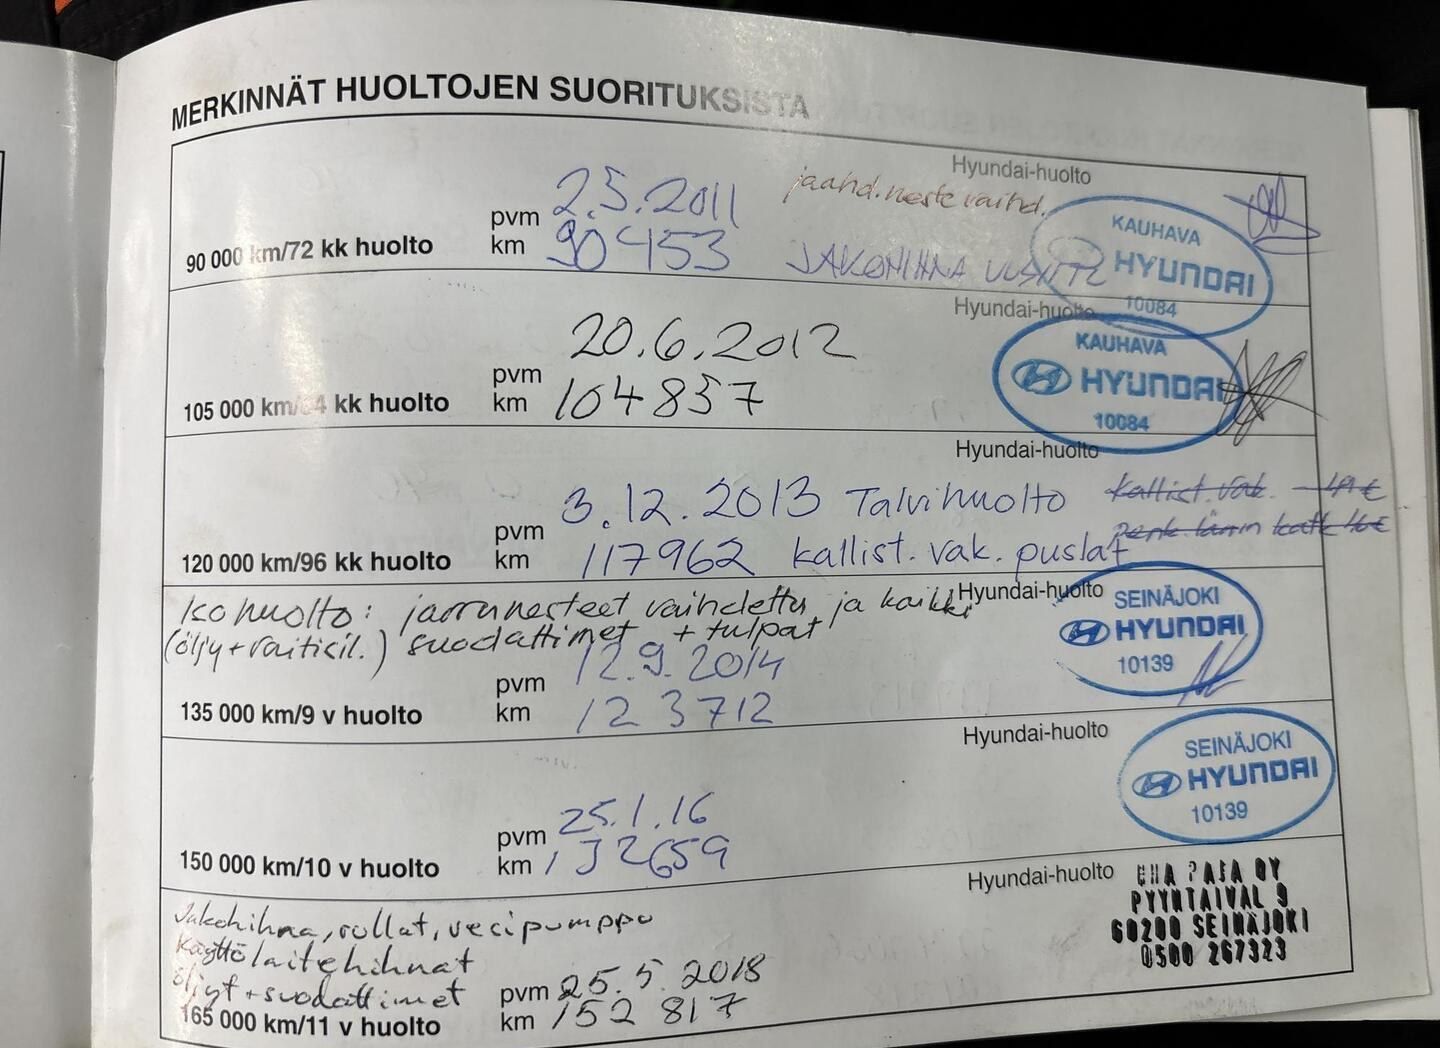 MERKINNÄT HUOLTOJEN SUORITUKSISTA
Hyundai-huolto
jäähd.neste vaihd.
pvm 2.5.2011
90 000 km/72 kk huolto km 90453 JAKOHIHNA
KAUHAVA
HYUNDAI
10084
Hyundai-huolto
20.6.2012
pvm
105 000 km/84 kk huolto km 104857
KAUHAVA
HYUNDAI
10084
Hyundai-huolto
pvm 3.12.2013 Talvihuolto kallist.vak. 49€
120 000 km/96 kk huolto km 117962 kallist. vak. puslat
Hyundai-huolto
Iso huolto: jarrunesteet vaihdettu ja kaikki
(öljy+raitisil.) suodattimet + tulpat
pvm 12.9.2014
135 000 km/9 v huolto km 123712
SEINÄJOKI
HYUNDAI
10139
Hyundai-huolto
pvm 25.1.16
150 000 km/10 v huolto km 132659
SEINÄJOKI
HYUNDAI
10139
Hyundai-huolto
Jakohihna, rullat, vesipumppu
Käyttölaitehihnat
öljyt+suodattimet pvm 25.5.2018
165 000 km/11 v huolto km 152817
OY
PYYNTAIVAL 9
60200 SEINÄJOKI
0500 267323